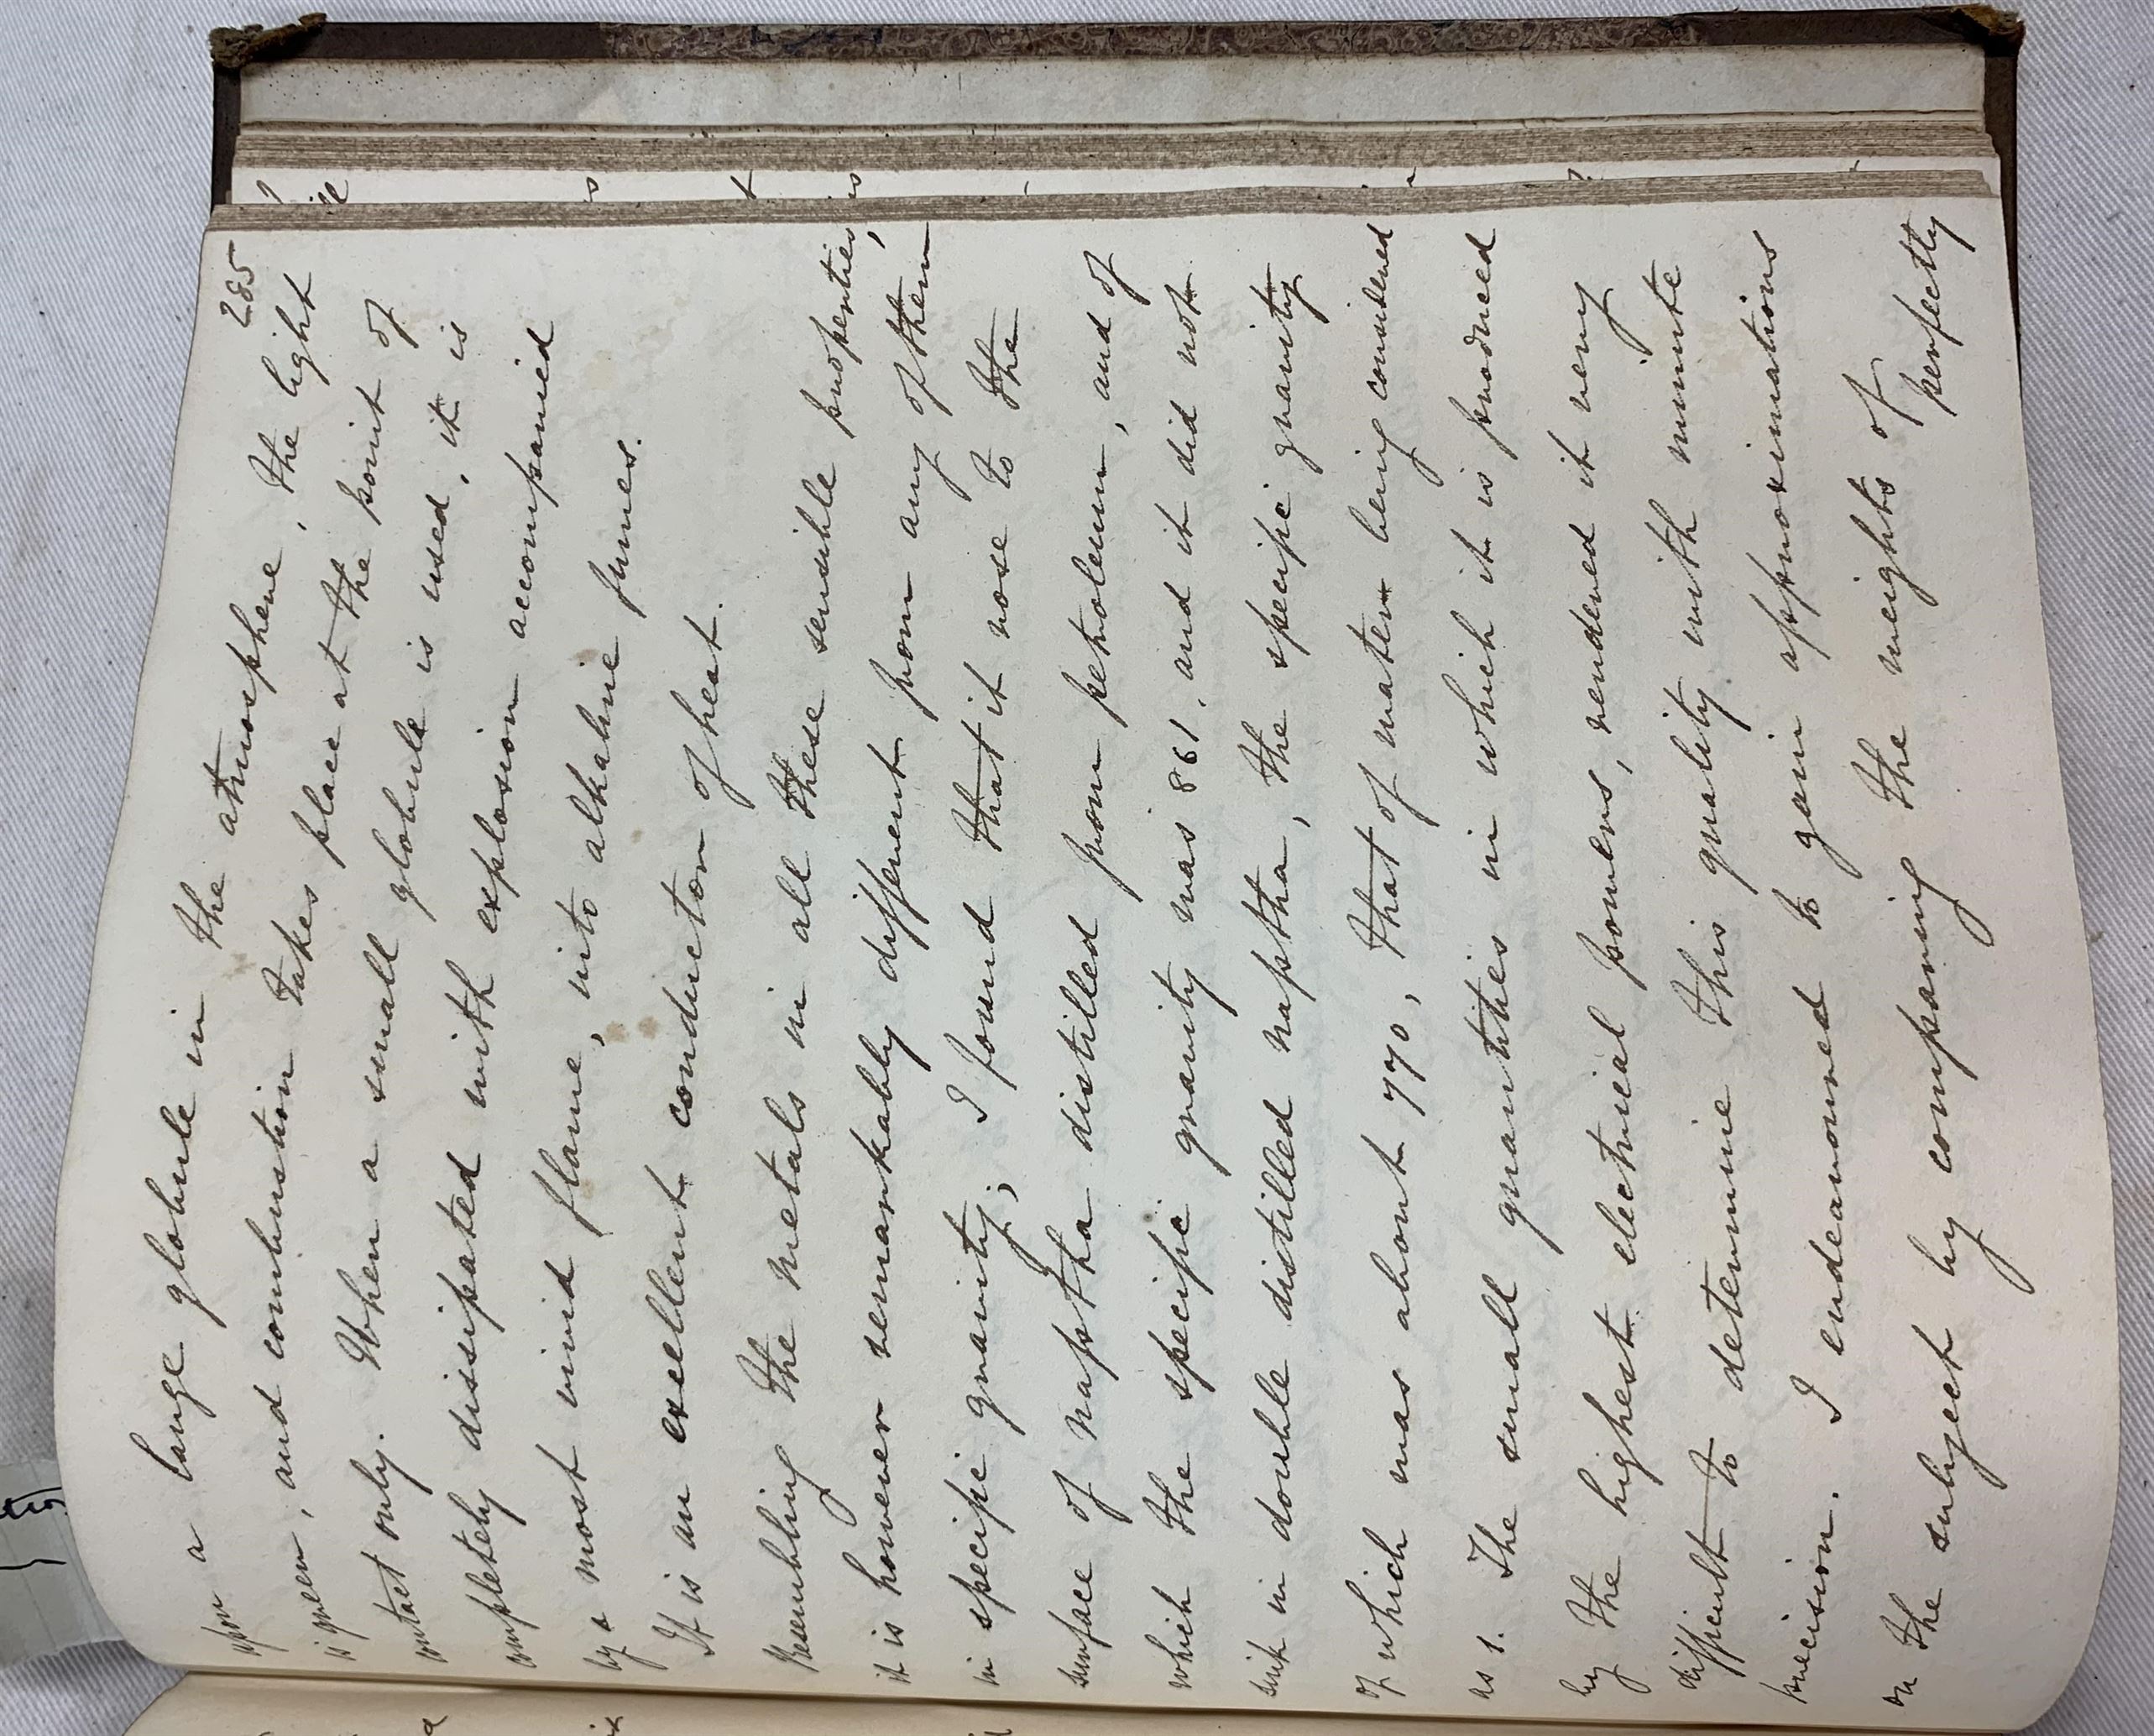 285
upon a large globule in the atmosphere, the light
is green, and combustion takes place at the point of
contact only. When a small globule is used, it is
completely dissipated with explosion accompanied
by a most vivid flame, into alkaline fumes.
It is an excellent conductor of heat.
Resembling the metals in all these sensible properties,
it is however remarkably different from any of them
in specific gravity; I found that it rose to the
surface of naptha distilled from petroleum, and of
which the specific gravity was 861, and it did not
sink in double distilled naptha, the specific gravity
of which was about 770, that of water being considered
as 1. The small quantities in which it is produced
by the highest electrical powers, rendered it very
difficult to determine this quality with minute
precision. I endeavoured to gain approximations
on the subject by comparing the weights of
perfectly